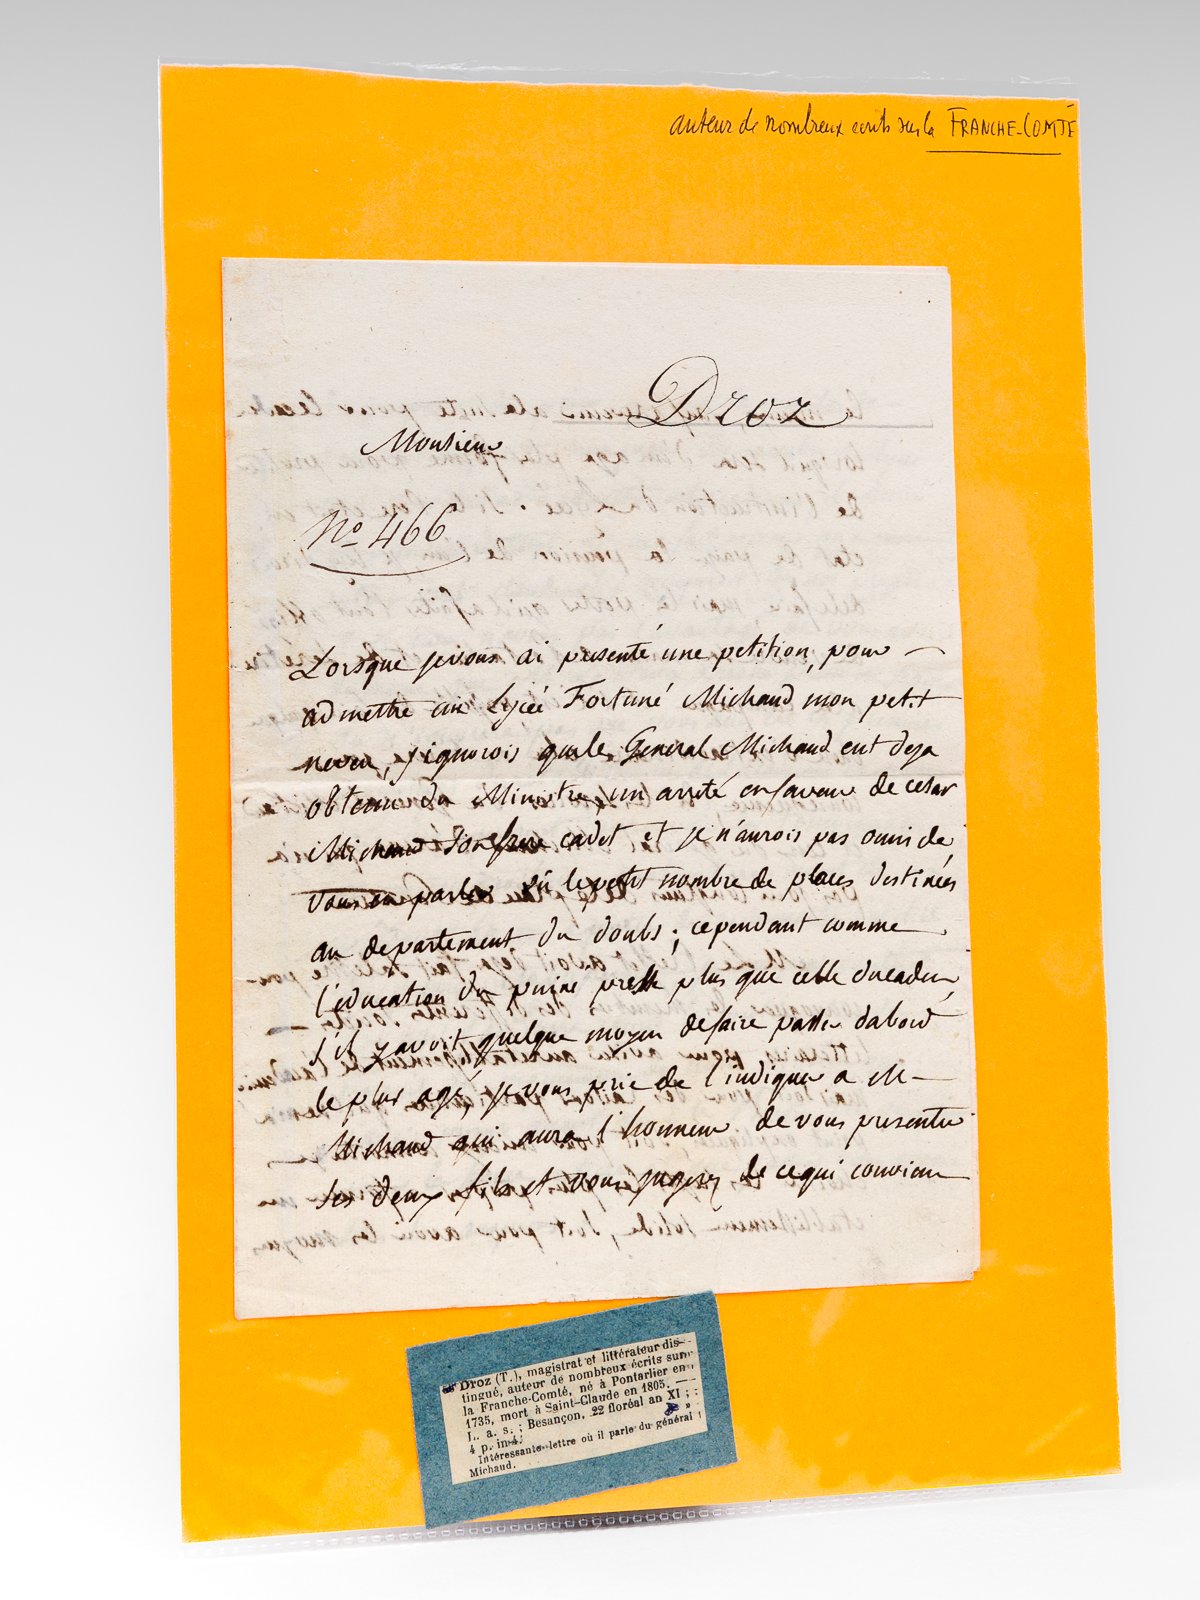 auteur de nombreux ecrits sur la FRANCHE-COMTÉ
Droz
Monsieur
No 466
Lorsque je vous ai presenté une petition, pour
admettre au Lycée Fortuné Michaud, mon petit
neveu, j'ignorois que le General Michaud eut deja
obtenu du Ministre, un arreté en faveur de cesar
Michaud son frere cadet et je n'aurois pas omis de
vous en parler vû le petit nombre de places destinées
au departement du doubs; cependant comme
l'education du puiné presse plus que celle du cadet,
s'il y avoit quelque moyen de faire passer dabord
le plus agé, je vous prie de l'indiquer a M.
Michaud qui aura l'honneur de vous presenter
ses deux fils et vous jugerez de ce qui convient
Droz (T.), magistrat et littérateur dis-
tingué, auteur de nombreux écrits sur
la Franche-Comté, né à Pontarlier en
1735, mort à Saint-Claude en 1805. —
L. a. s.; Besançon, 22 floréal an XI;
4 p. in-4.
Intéressante lettre où il parle du général
Michaud.